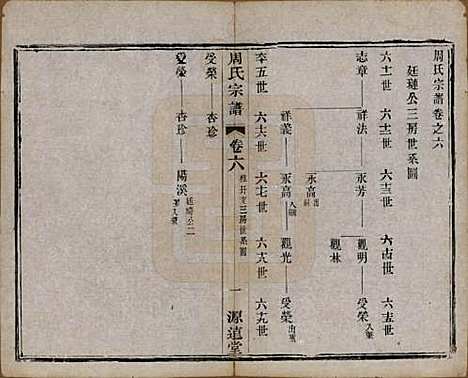 周氏宗譜卷之六
廷璉公三房世系圖
六十一世 六十二世 六十三世 六十四世 六十五世
志章 祥法 永芳 觀明 受榮
觀林
永高
祥義 永高 觀光 受榮
李五世 六十六世 六十七世 六十八世 六十九世
周氏宗譜 卷六 一 源道堂
受榮 杏珍
受榮 杏珍 陽溪